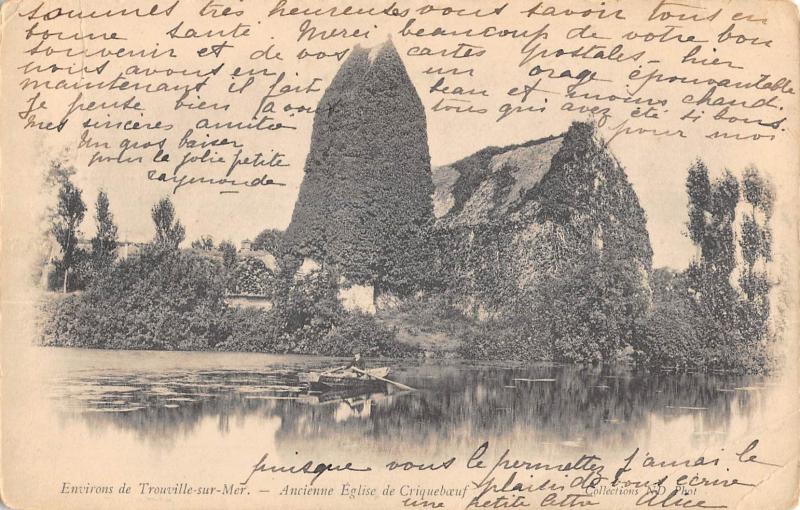 sommes très heureuses vous savoir tous en
bonne santé. Merci beaucoup de votre bon
souvenir et de vos cartes postales – hier
nous avons eu un orage épouvantable
maintenant il fait beau et moins chaud.
Je pense bien à vous tous qui avez été si bons
pour moi
Mes sincères amitiés
Un gros baiser
pour la jolie petite
Raymonde
puisque vous le permettez j'aurai le
plaisir de vous écrire
une petite lettre Alice
Environs de Trouville-sur-Mer. – Ancienne Église de Criquebœuf
Collections ND Phot